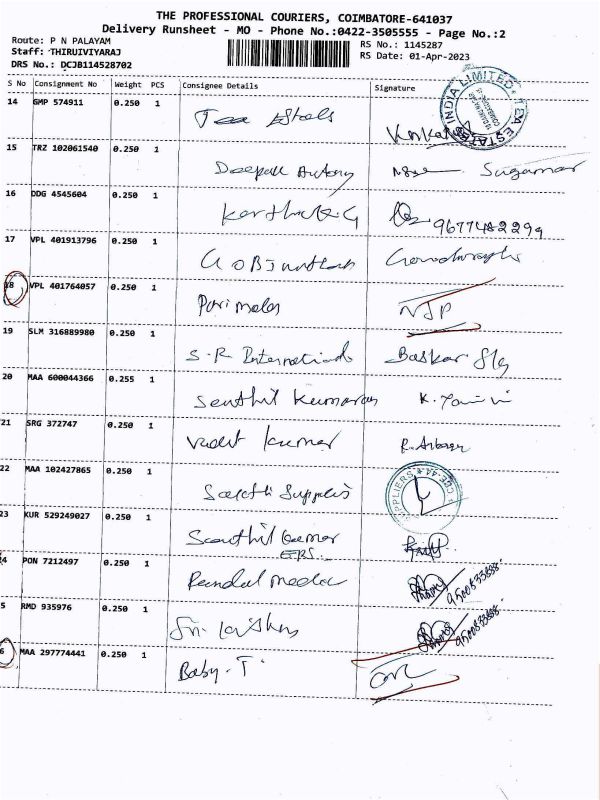 THE PROFESSIONAL COURIERS, COIMBATORE-641037
Delivery Runsheet - MO - Phone No.:0422-3505555 - Page No.:2
Route: P N PALAYAM
Staff: THIRUVIYARAJ
DRS No.: DCJB114528702
RS No.: 1145287
RS Date: 01-Apr-2023
S No Consignment No Weight PCS Consignee Details Signature
14 GMP 574911 0.250 1 Tea Estals
TEA ESTATES INDIA LIMITED
15 TRZ 102061540 0.250 1 Deepak Antony Sugumar
16 DDG 4545604 0.250 1 Karthik G 9677482299
17 VPL 401913796 0.250 1
18 VPL 401764057 0.250 1 Parimala NJP
19 SLM 316889980 0.250 1 S.R International Baskar
20 MAA 600044366 0.255 1 Senthil Kumaran K.
21 SRG 372747 0.250 1 kumar R.
22 MAA 102427865 0.250 1 Sakthi Supplies
SUPPLIERS CBE-44
23 KUR 529249027 0.250 1 Senthil kumar
24 PON 7212497 0.250 1 9500833888
5 RMD 935976 0.250 1 Sri 9500833888
6 MAA 297774441 0.250 1 Baby. T